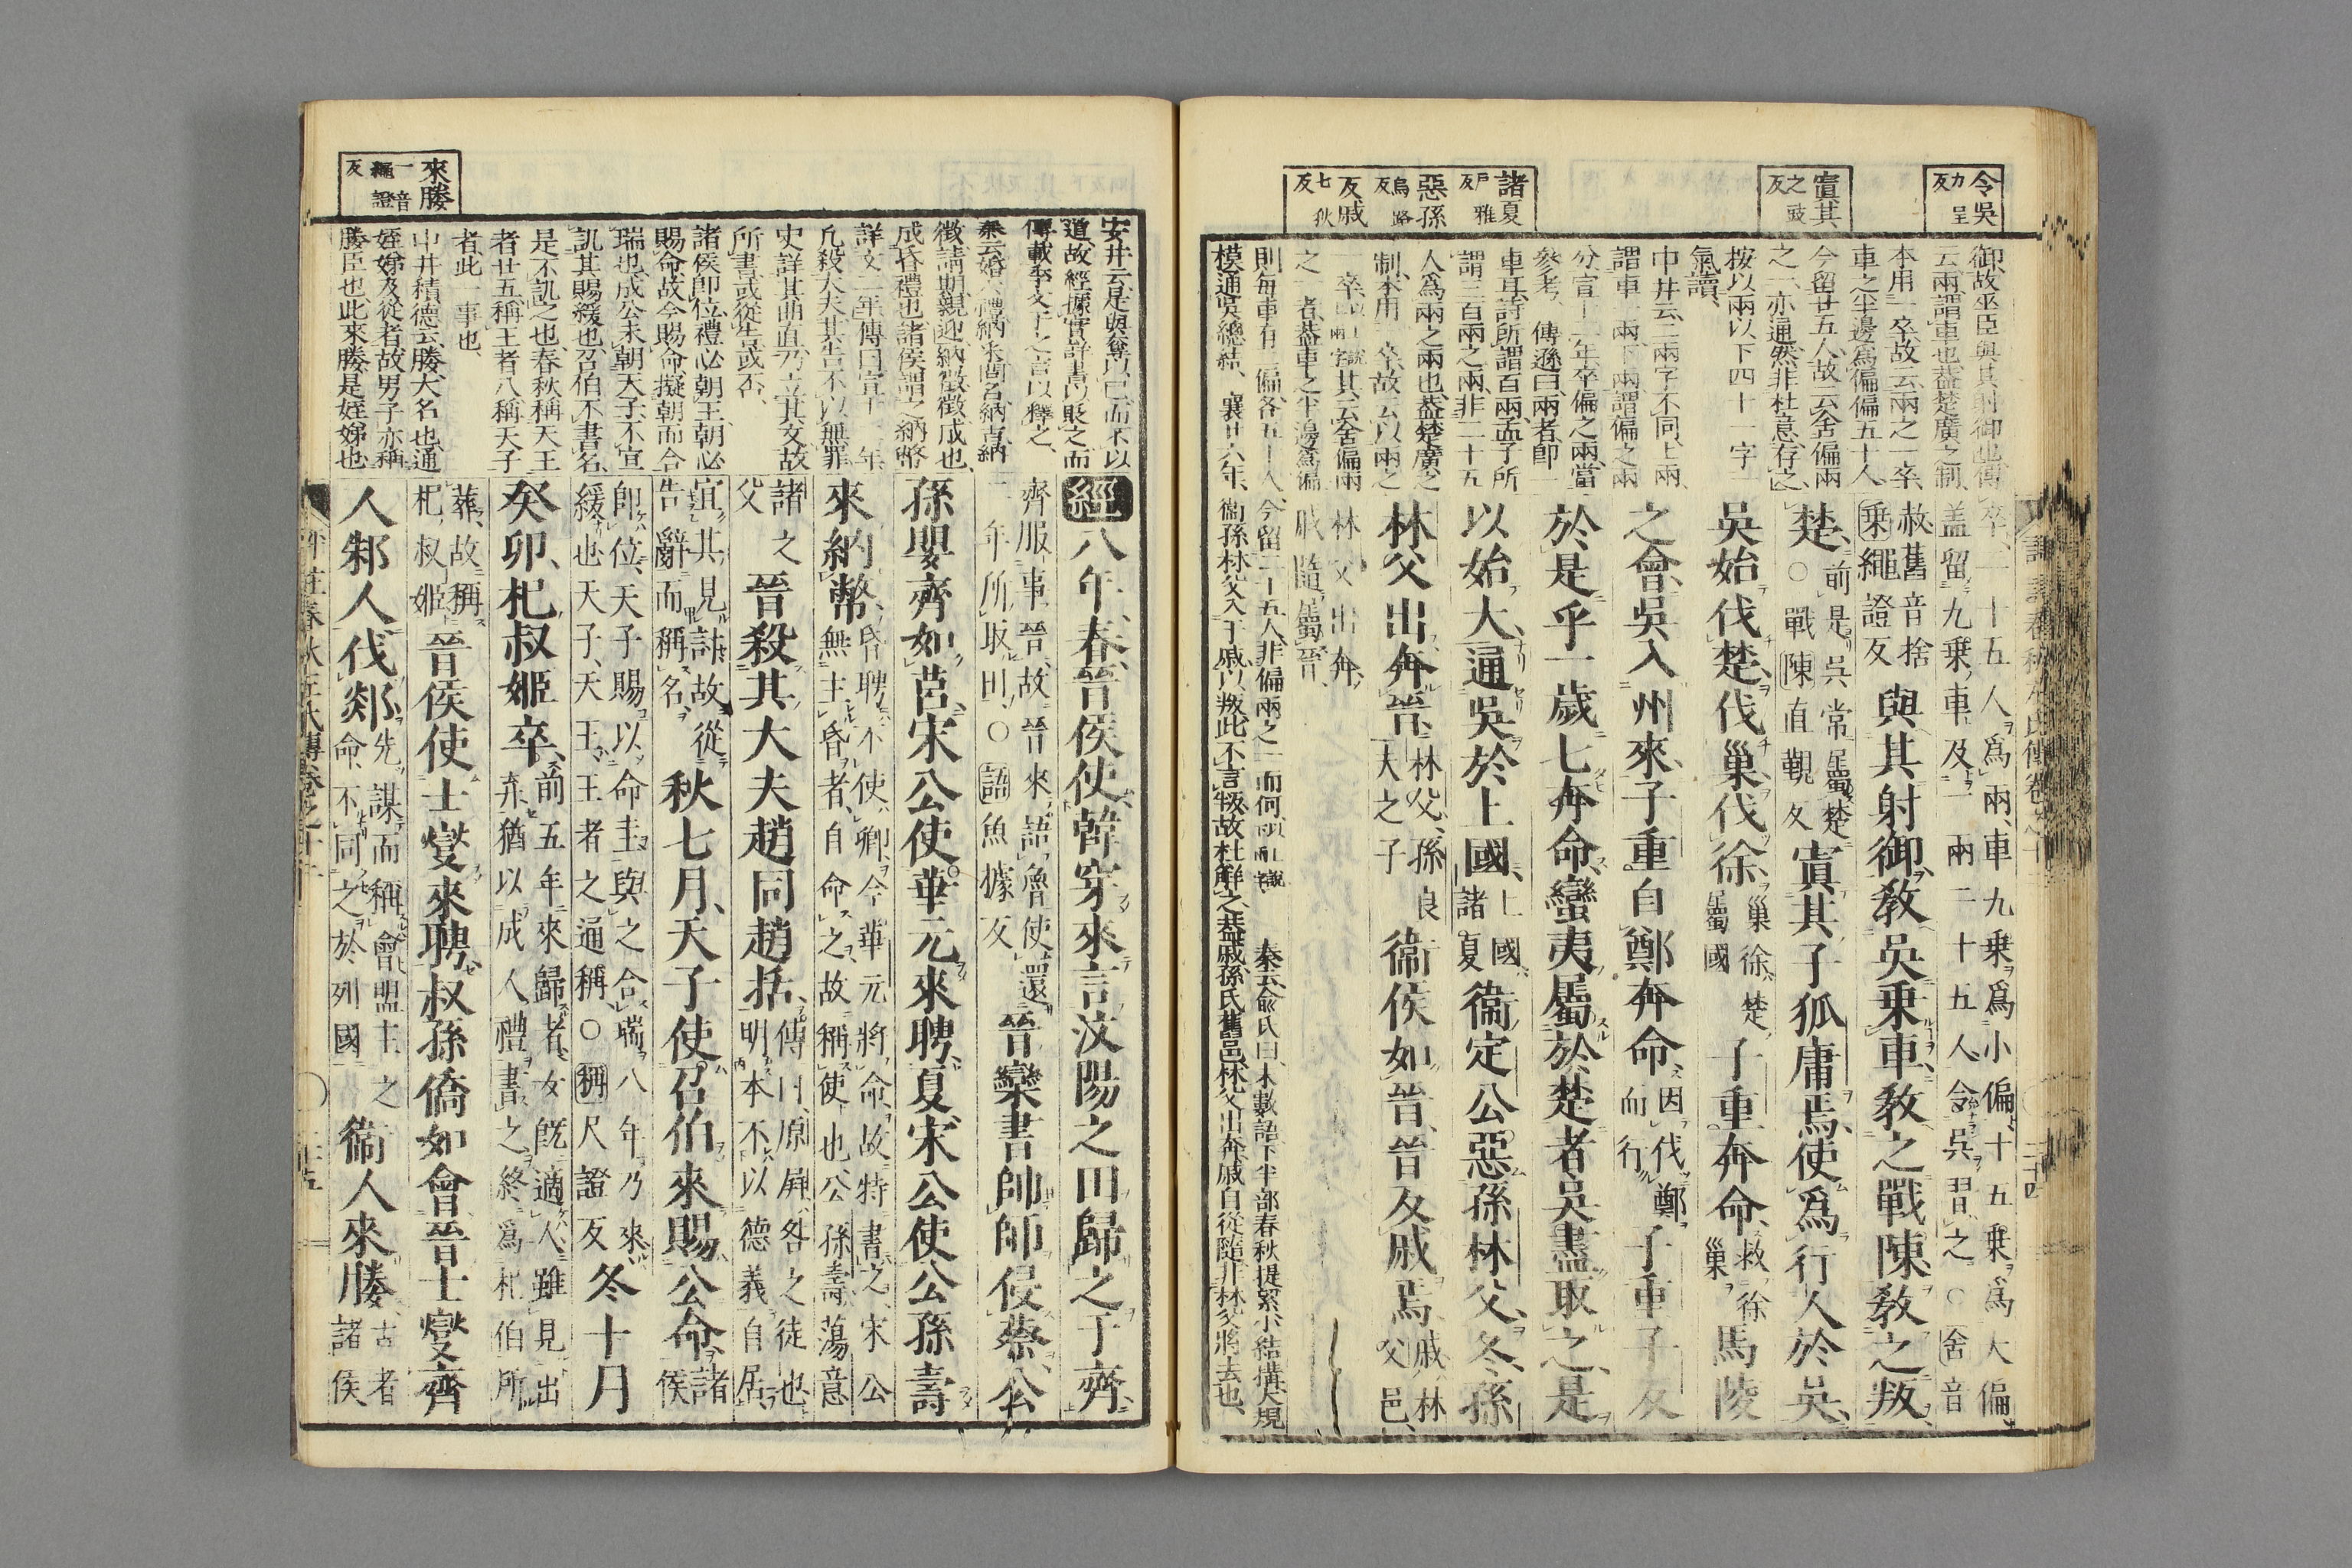 令吳
力呈反
寘其
之豉反
諸夏
戶雅反
惡孫
烏路反
反戚
七狄反
御故巫臣與其射御也傳
云兩謂車也蓋楚廣之制
本用一卒故云兩之一卒
車之半邊爲偏偏五十人
今留廿五人故云舍偏兩
之一亦通然非杜意存之
按以兩以下四十一字一
氣讀
中井云二兩字不同上兩
謂車一兩下兩謂偏之兩
分宣十二年卒偏之兩當
參考 傳遜曰兩者卽一
車耳詩所謂百兩孟子所
謂三百兩之兩非二十五
人爲兩之兩也蓋楚廣之
制本用一卒故云以兩之
一卒其云舍偏兩
之一者蓋車之半邊爲偏
則每車有二偏各五十人
今留二十五人非偏兩之一而何
秦云兪氏曰
模通貫總結 襄廿六年
衞孫林父入于戚以叛此不言叛故杜解之蓋戚孫氏舊邑林父出奔戚自從隨非林父將去也
卒二十五人爲兩車九乗爲小偏十五乗爲大偏
蓋留九乗車及一兩二十五人令吳習之○舍音
赦舊音捨
乗繩證反
與其射御敎吳乗車敎之戰陳敎之叛
楚
前是吳常屬楚
○戰陳直覲反
寘其子狐庸焉使爲行人於吳
吳始伐楚伐巢伐徐
巢徐楚
屬國
子重奔命
救徐
巢
馬陵
之會吳入州來子重自鄭奔命
因伐鄭
而行
子重子反
於是乎一歲七奔命蠻夷屬於楚者吳盡取之是
以始大通吳於上國
上國
諸夏
衞定公惡孫林父冬孫
林父出奔晉
林父孫良
夫之子
衞侯如晉晉反戚焉
戚林
父邑
林父出奔
戚隨屬晉
來媵
一音繩證反
安井云是與奪以已而不以
道故經據實詳書以貶之而
傳載季文子之言以釋之
秦云婚六禮納采問名納吉納
徵請期親迎納徵徵成也
成昏禮也諸侯謂之納幣
詳文二年傳曰宣十一年
凡殺大夫其告不以無罪
史詳其曲直乃立其文故
所書或從告或否
諸侯卽位禮必朝王朝必
賜命故今賜命擬朝而合
瑞也成公未朝天子不宣
譏其賜緩也召伯不書名
是不譏之也春秋稱天王
者廿五稱王者八稱天子
者此一事也
中井積德云媵大名也通
姪娣及從者故男子亦稱
媵臣也此來媵是姪娣也
經八年春晉侯使韓穿來言汶陽之田歸之于齊
齊服事晉故晉來語魯使還
二年所取田○語魚據反
晉欒書帥師侵蔡公
孫嬰齊如莒宋公使華元來聘夏宋公使公孫壽
來納幣
昏聘不使卿今華元將命故特書之宋公
無主昏者自命之故稱使也公孫壽蕩意
諸之
父
晉殺其大夫趙同趙括
傳曰原屛咎之徒也
明本不以德義自居
宜其見討故從
告辭而稱名
秋七月天子使召伯來賜公命
諸侯
卽位天子賜以命圭與之合瑞八年乃來
緩也天子天王王者之通稱○稱尺證反
冬十月
癸卯杞叔姬卒
前五年來歸者女旣適人雖見出
弃猶以成人禮書之終爲杞伯所
葬故稱
杞叔姬
晉侯使士燮來聘叔孫僑如會晉士燮齊
人邾人伐郯
先謀而稱會盟主之
命不同之於列國
衞人來媵
古者
諸侯